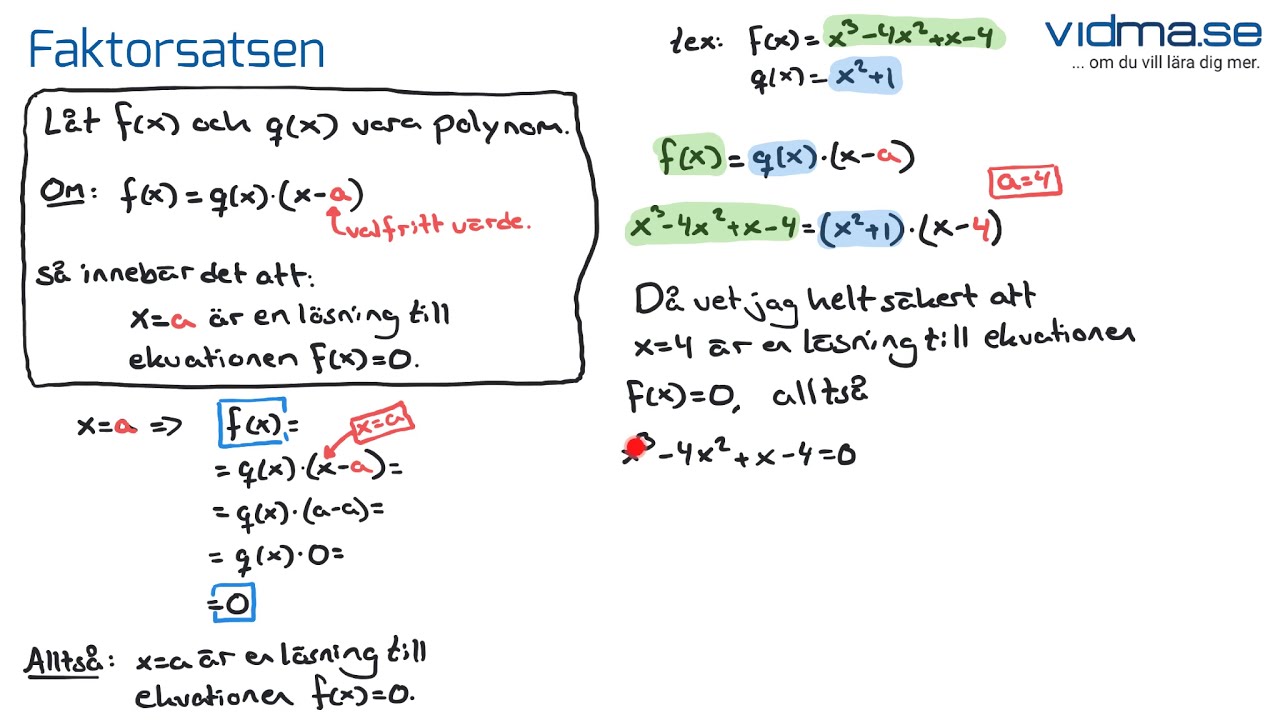 Faktorsatsen
Låt f(x) och q(x) vara polynom.
Om: f(x) = q(x)·(x-a)
valfritt värde.
så innebär det att:
x=a är en lösning till
ekvationen f(x)=0.
x=a => f(x)=
x=a
= q(x)·(x-a)=
= q(x)·(a-a)=
= q(x)·0=
=0
Alltså: x=a är en lösning till
ekvationen f(x)=0.
tex: f(x)= x³-4x²+x-4
q(x)= x²+1
vidma.se
... om du vill lära dig mer.
f(x) = q(x)·(x-a)
a=4
x³-4x²+x-4=(x²+1)·(x-4)
Då vet jag helt säkert att
x=4 är en lösning till ekvationen
f(x)=0, alltså
x³-4x²+x-4=0